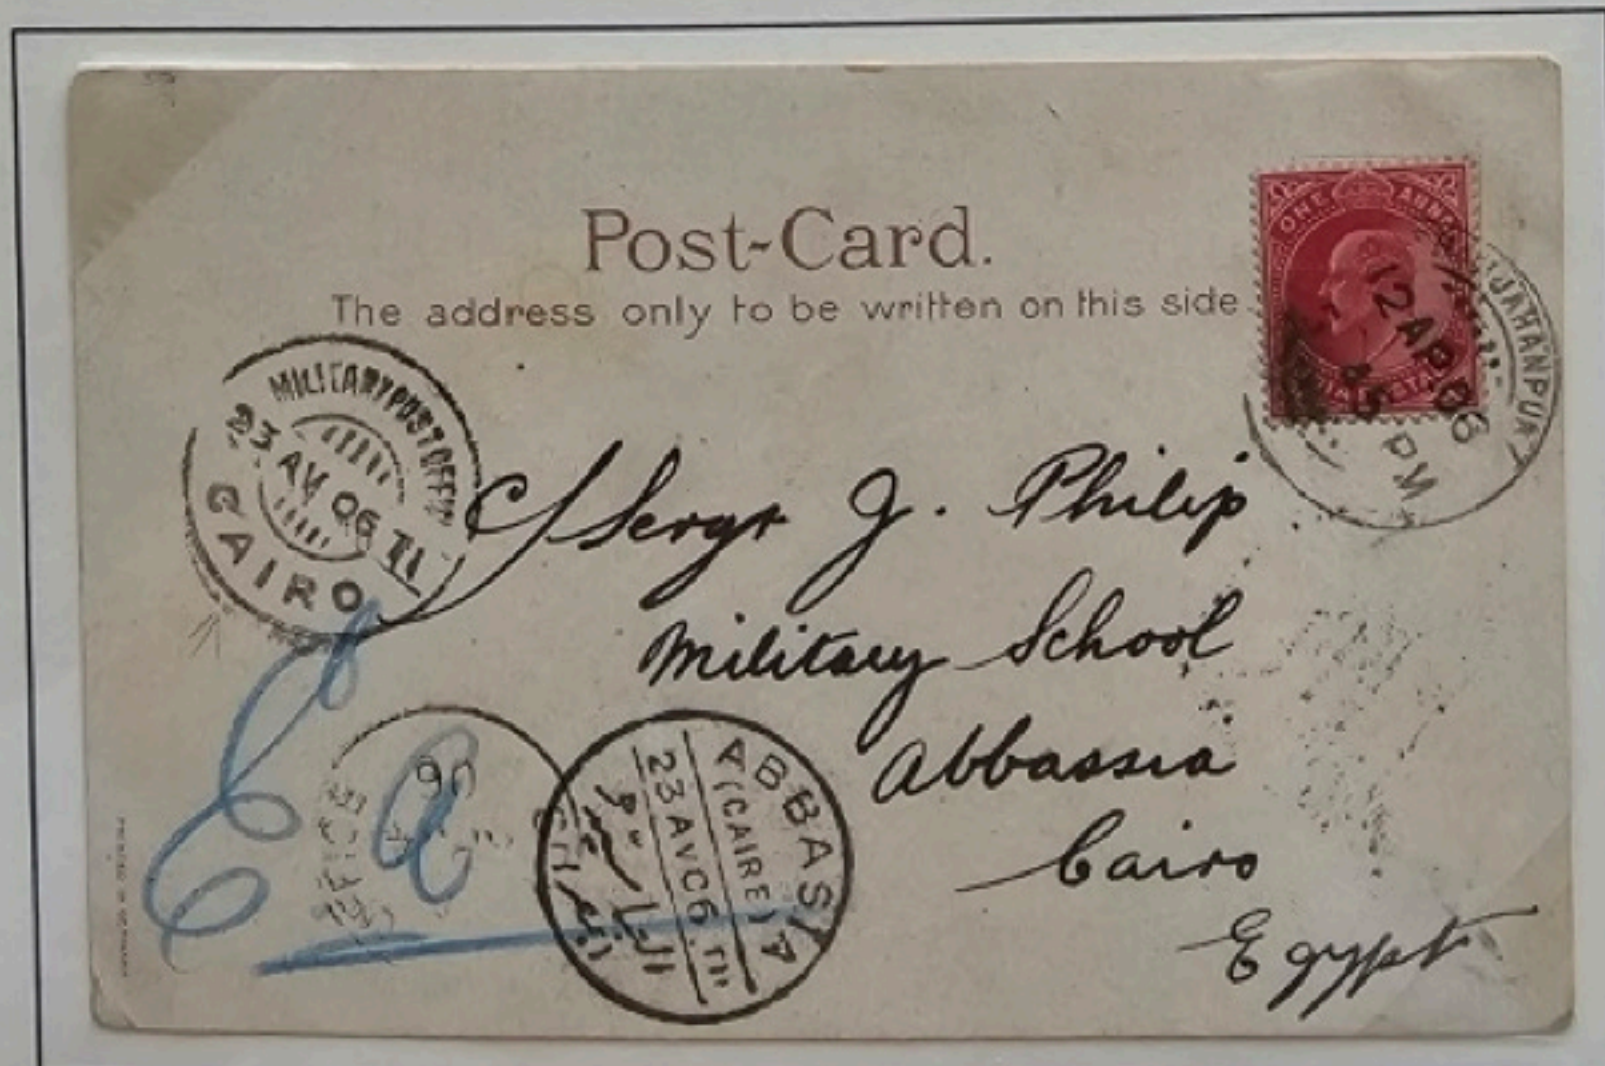 Post-Card.
The address only to be written on this side.
ONE ANNA
JAHANPUR
12 AP. 06
PM
MILITARY POST OFFICE
23 AV 06 TI
CAIRO
C/ Sergt J. Philip
Military School
Abbassia
Cairo
Egypt
ABBASIA
(CAIRE)
23 AV 06. TI
06